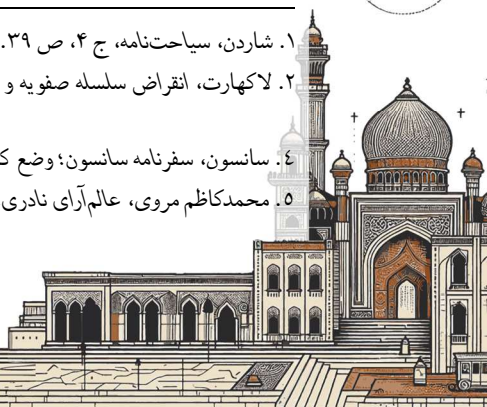 ۱. شاردن، سیاحت‌نامه، ج ۴، ص ۳۹.
۲. لاکهارت، انقراض سلسله صفویه و
٤. سانسون، سفرنامه سانسون؛ وضع
٥. محمدکاظم مروی، عالم‌آرای نادری